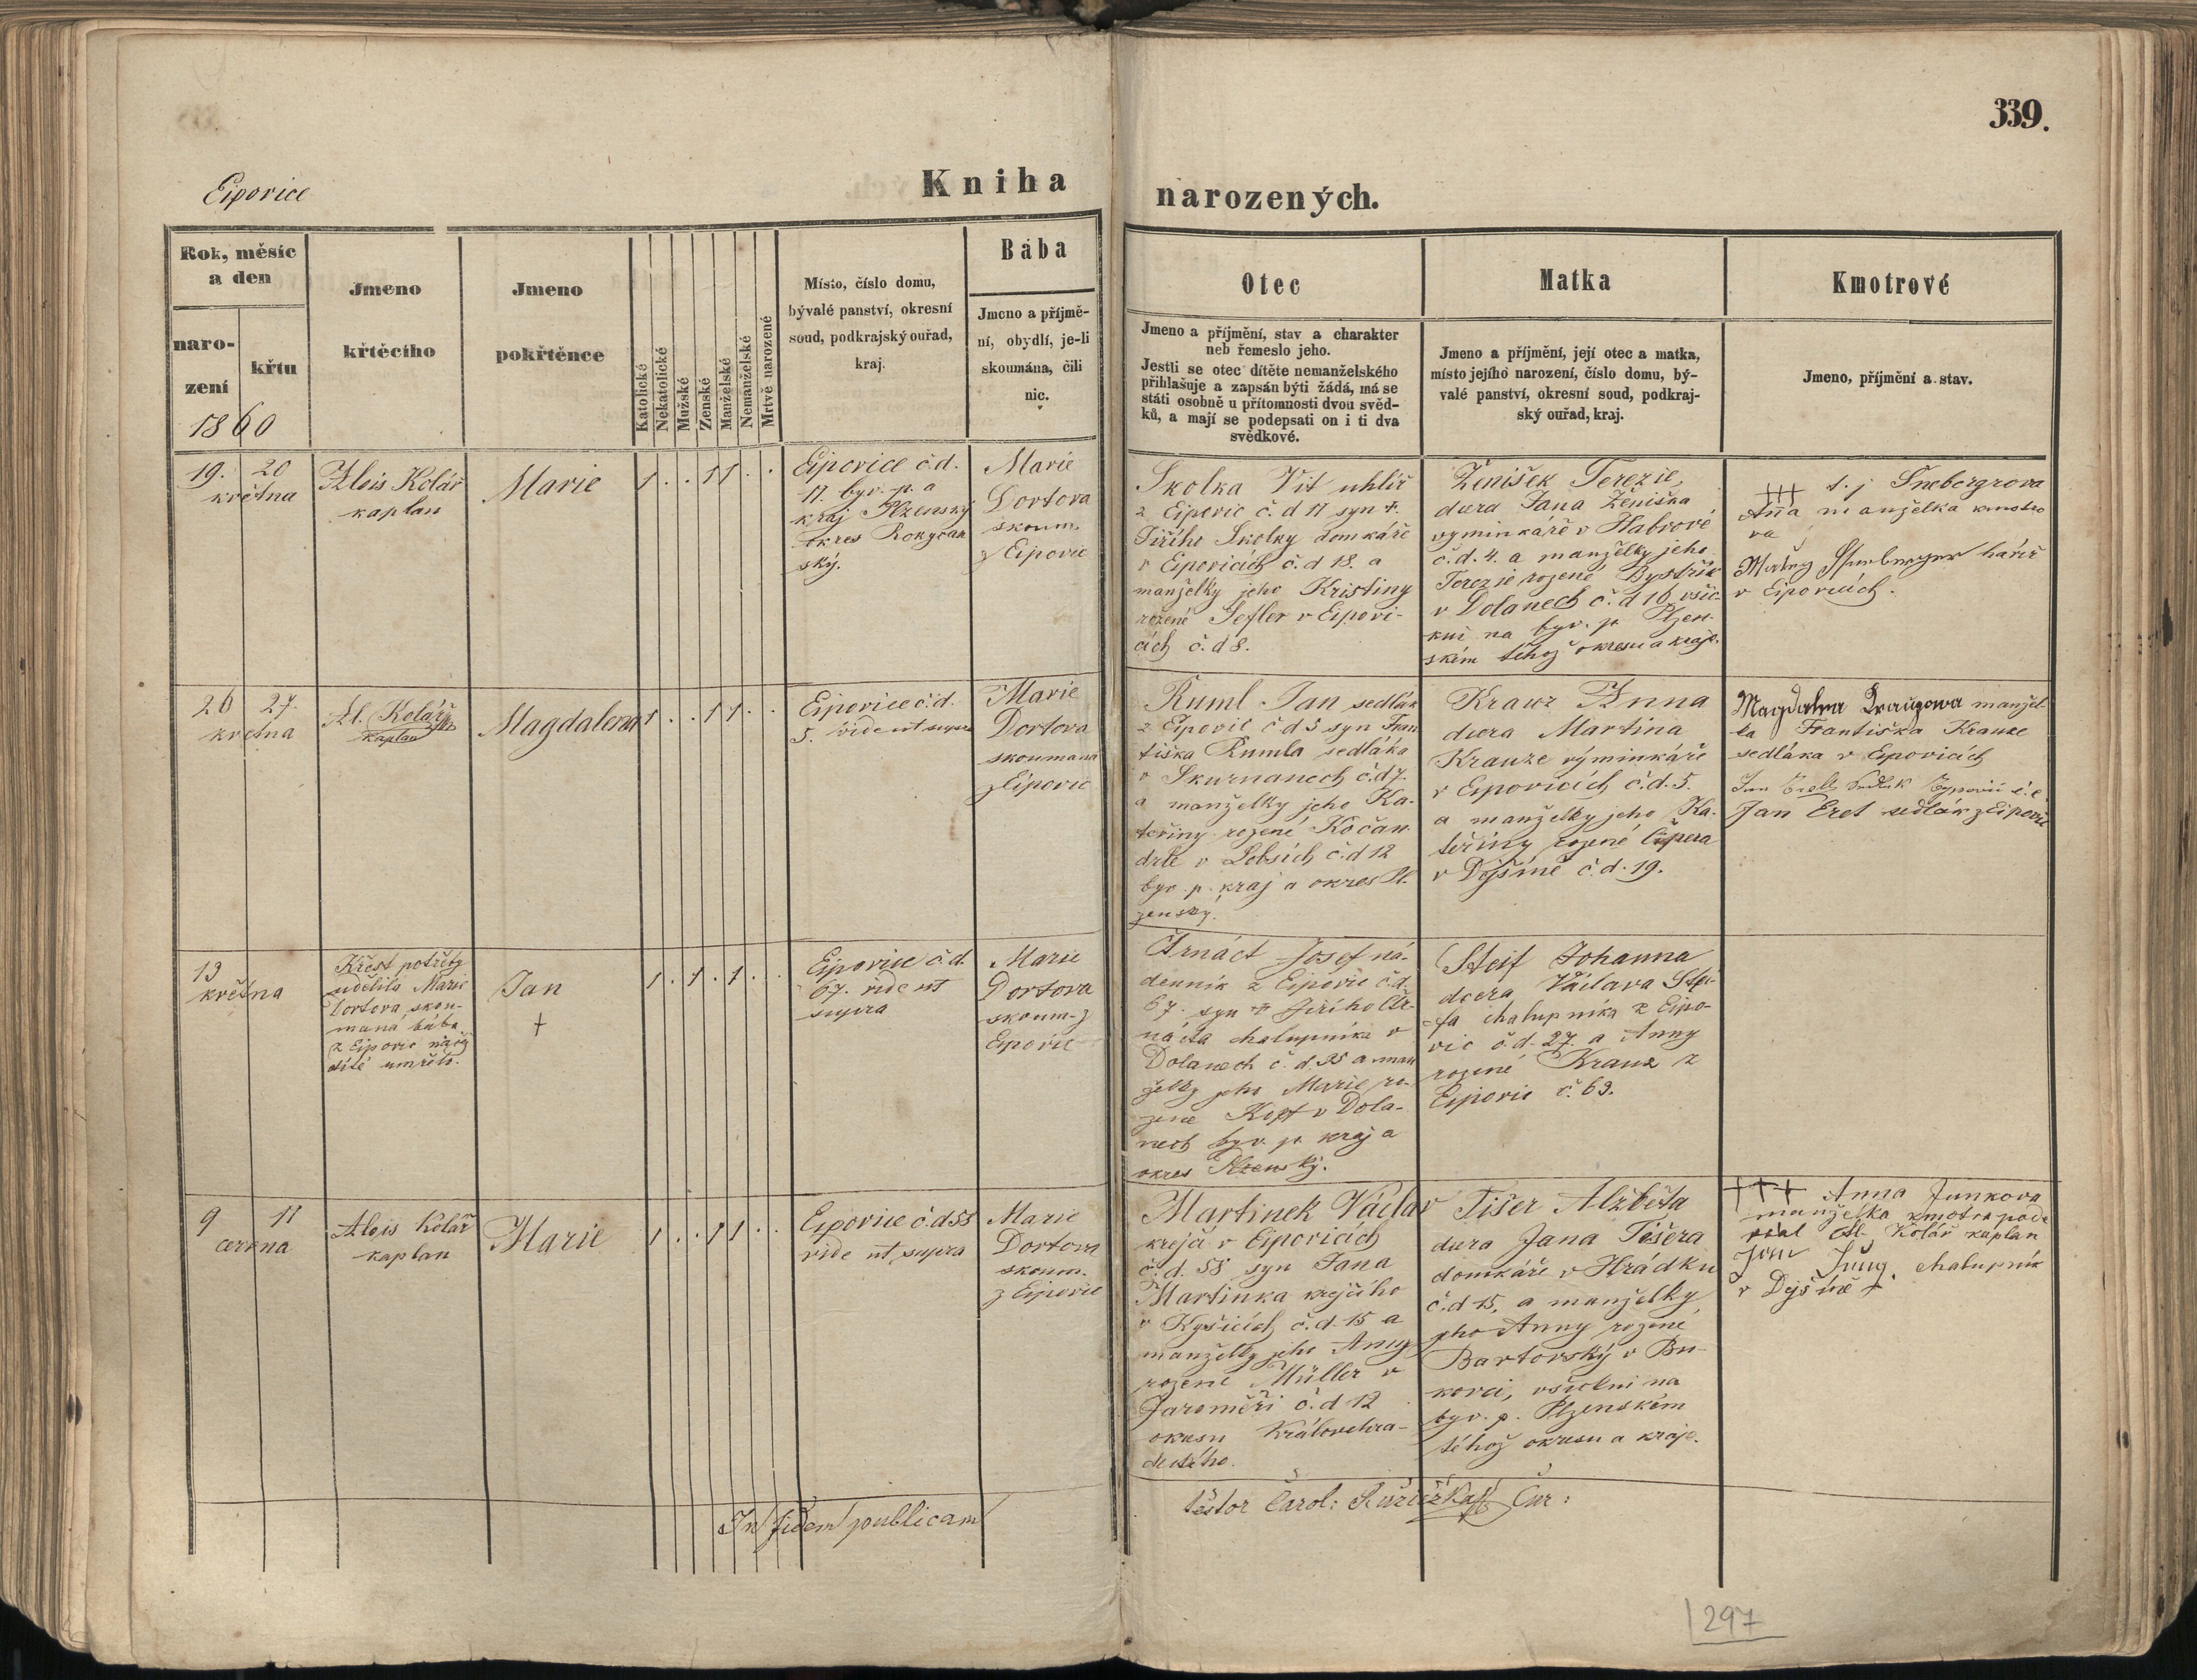 339.
Eipovice
Kniha
narozených.
Rok, měsíc
a den
naro-
zení
křtu
1860
Jmeno
křtěcího
Jmeno
pokřtěnce
Katolické
Nekatolické
Mužské
Zenské
Manželské
Nemanželské
Mrtvě narozené
Místo, číslo domu,
bývalé panství, okresní
soud, podkrajský ouřad,
kraj.
Bába
Jmeno a příjmě-
ní, obydlí, je-li
skoumána, čili
nic.
Otec
Jmeno a příjmění, stav a charakter
neb řemeslo jeho.
Jestli se otec dítěte nemanželského
přihlašuje a zapsán býti žádá, má se
státi osobně u přítomnosti dvou svěd-
ků, a mají se podepsati on i ti dva
svědkové.
Matka
Jmeno a příjmění, její otec a matka,
místo jejího narození, číslo domu, bý-
valé panství, okresní soud, podkraj-
ský ouřad, kraj.
Kmotrové
Jmeno, příjmění a stav.
19. 20
května
Alois Kolář
kaplan
Marie
1 . . 1 1 . .
Eipovice č.d.
17. byv. p. a
kraj Plzenský
okres Rokyčan
ský.
Marie
Dortova
skoum.
z Eipovic
Skolka Vit uhlíř
z Eipovic č. d 17 syn †.
Jiřího Skolky domkáře
v Eipovicích č. d 18. a
manželky jeho Kristiny
rozené Sefler v Eipovi-
cích č. d 8.
Ženišek Terezie,
dcera Jana Ženiška
vyminkáře v Habrové
č. d. 4. a manželky jeho
Terezie rozené Bystřic
v Dolanech č. d 16 všic-
kni na byv. p. Plzen-
ském téhož okresu a kraje.
††† t. j Šnebergrova
Anna manželka kmotro
va
Matěj Schneberger havíř
v Eipovicích.
26 27.
května
Al. Kolář
kaplan
Magdalena
1 . . 1 1 . .
Eipovice č.d.
5. vide ut supra
Marie
Dortova
skoumana
z Eipovic
Ruml Jan sedlák
z Eipovic č d 5 syn Fran
tiška Rumla sedláka
v Skurnanech č.d 7.
a manželky jeho Ka-
teřiny rozené Kočan-
drle v Lobsích č. d 12
byv. p. kraj a okres Pl.
zenský.
Krauz Anna
dcera Martina
Krauze výminkáře
v Eipovicích č. d. 5.
a manželky jeho Ka-
teřiny rozené Čipera
v Dýšině č. d. 19.
Magdalena Krauzowa manžel-
ka Františka Krauze
sedláka v Eipovicích
Jan Eret sedlák z Eipovic
13
května
Křest potřeby
udělila Marie
Dortova skou-
maná bába
z Eipovic načež
dítě umřelo.
Jan
†
1 . 1 . 1 . .
Eipovice č.d.
67. vide ut
supra
Marie
Dortova
skoum. z
Eipovic
Čtrnáct Josef ná-
denník z Eipovic č.d.
67. syn † Jiřího Čtr-
nácta chalupníka v
Dolanech č. d. 25 a man
želky jeho Marie ro-
zené Kopt v Dola-
nech byv. p. kraj a
okres Plzenský.
Steif Johanna
dcera Václava Stei-
fa chalupníka z Eipo-
vic č. d. 27. a Anny
rozené Krauz z
Eipovic č. 63.
9 11
června
Alois Kolář
kaplan
Marie
1 . . 1 1 . .
Eipovice č.d 58
vide ut supra
Marie
Dortova
skoum.
z Eipovic
Martinek Václav
krejčí v Eipovicích
č. d. 58 syn Jana
Martinka krejčího
v Kyšicích č. d. 15 a
manželky jeho Anny
rozené Müller v
Jaroměři č. d 12
okresu Královehra-
deckého.
Tišer Alžběta
dcera Jana Tišera
domkáře v Hrádku
č. d 15, a manželky
jeho Anny rozené
Bartovský v Bu-
kovci, všickni na
byv. p. Plzenském
téhož okresu a kraje.
††† Anna Junkova
manželka kmotra pode
psal Al. Kolář kaplan
Jan Jung, chalupník
v Dýšině
In fidem publicam
testor Carol: Růžička Cur:
297